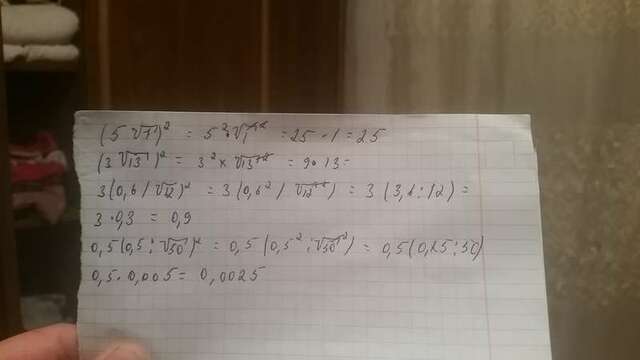 (5√1)² = 5²·√1² = 25·1 = 25
(3√13)² = 3² × √13² = 9·13 =
3(0,6/√12)² = 3(0,6²/√12²) = 3(3,6:12) =
3·0,3 = 0,9
0,5(0,5:√50)² = 0,5(0,5²:√50²) = 0,5(0,25:50)
0,5·0,005 = 0,0025